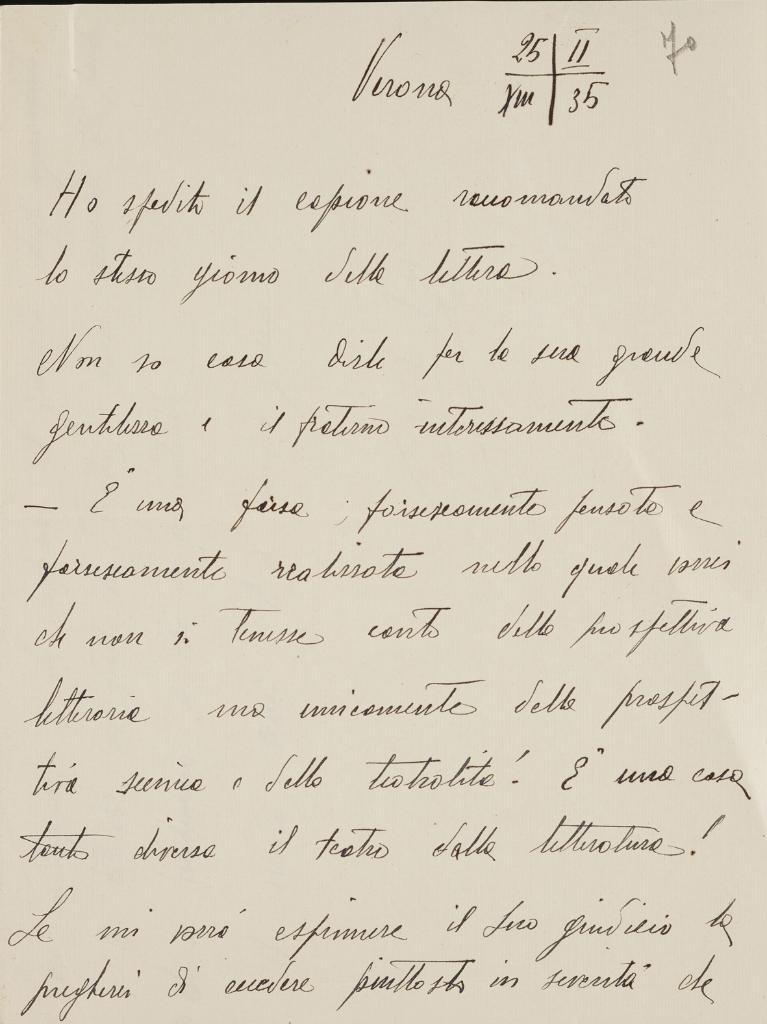 Verona 25 II
XIII 35
70
Ho spedito il copione raccomandato
lo stesso giorno della lettera.
Non so cosa dirle per la sua grande
gentilezza e il fraterno interessamento.
— E' una farsa; farsescamente pensata e
farsescamente realizzata nella quale vorrei
che non si tenesse conto della prospettiva
letteraria ma unicamente della prospet-
tiva scenica e della teatralità! E' una cosa
tanto diversa il teatro dalla letteratura!
Se mi vorrà esprimere il suo giudizio la
pregherei di eccedere piuttosto in severità che